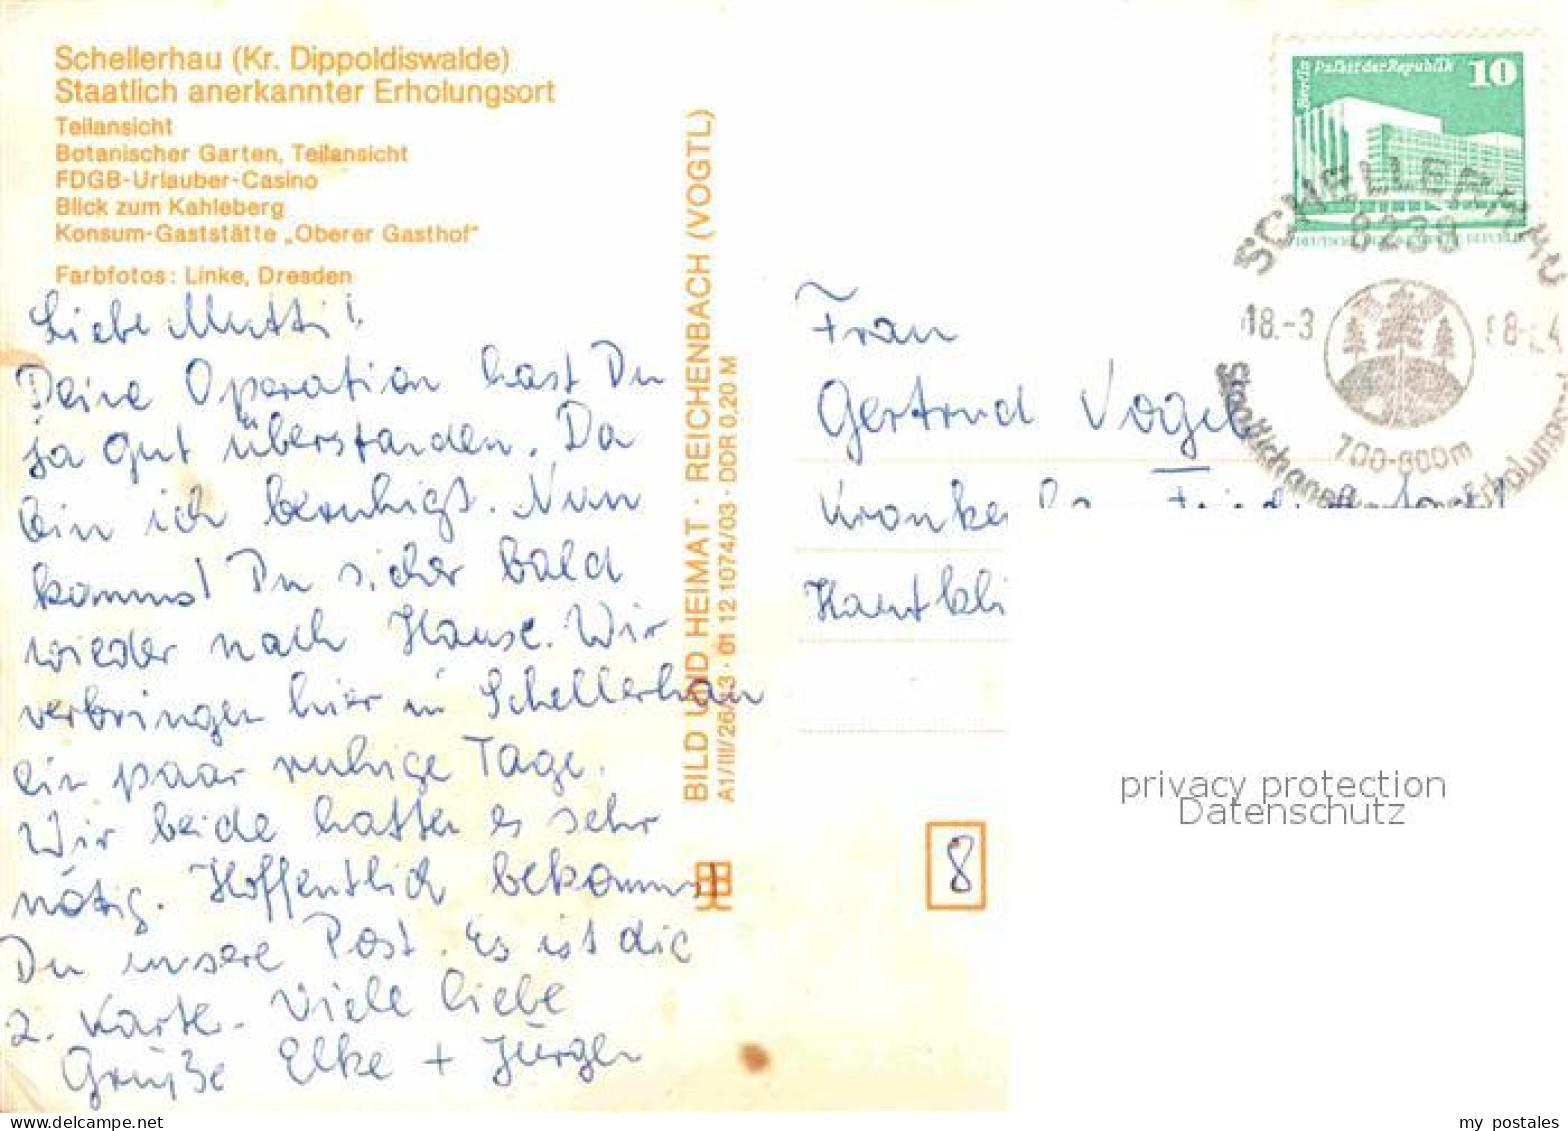 Schellerhau (Kr. Dippoldiswalde)
Staatlich anerkannter Erholungsort
Teilansicht
Botanischer Garten, Teilansicht
FDGB-Urlauber-Casino
Blick zum Kahleberg
Konsum-Gaststätte „Oberer Gasthof"
Farbfotos: Linke, Dresden
Liebe Mutti!
Deine Operation hast Du
ja gut überstanden. Da
bin ich beruhigt. Nun
kommst Du sicher bald
wieder nach Hause. Wir
verbringen hier in Schellerhau
ein paar ruhige Tage.
Wir beide hatten es sehr
nötig. Hoffentlich bekommst
Du unsere Post. Es ist die
2. Karte. Viele liebe
Grüße Elke + Jürgen
BILD UND HEIMAT · REICHENBACH (VOGTL)
01 12 1074/03 · DDR 0,20 M
Berlin Palast der Republik 10
SCHELLERHAU
8238
18.-3
700-800m
Staatlich anerkannter Erholungsort
Frau
Gertrud Vogel
8
privacy protection
Datenschutz
my postales